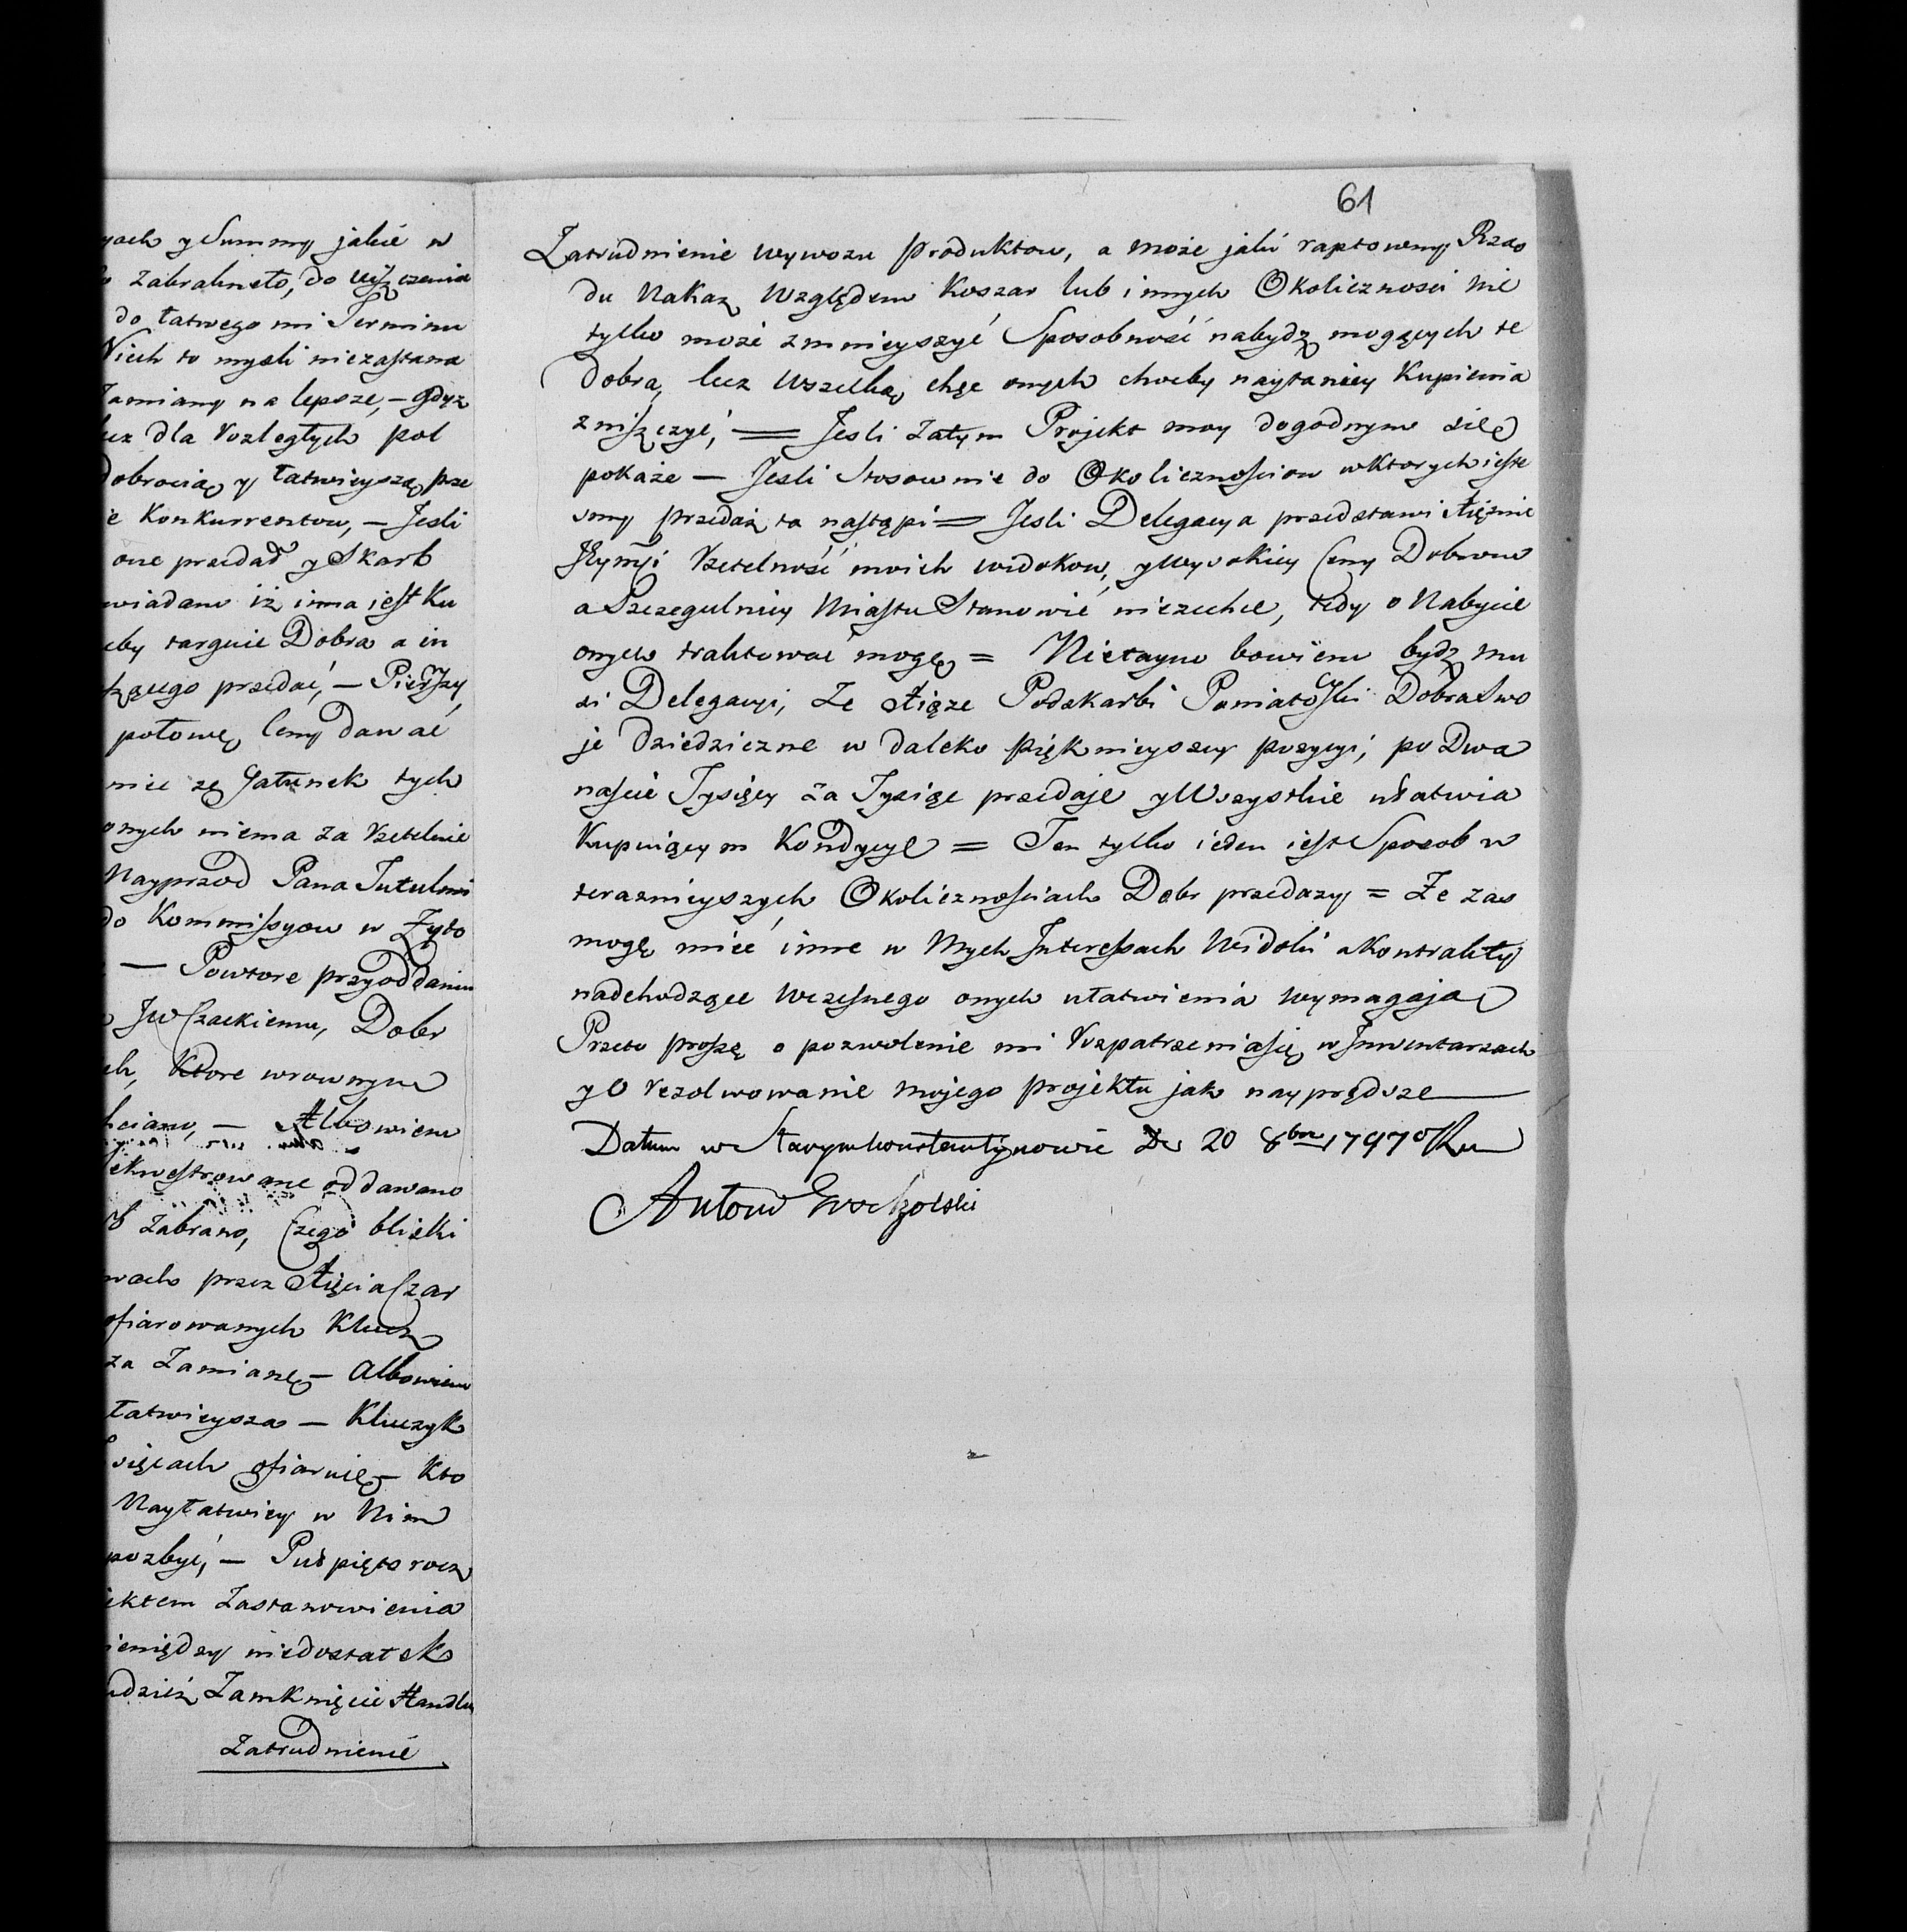 yach y Summy jakie w
zabrakneło, do uiszczenia
do łatwego mi Terminu
Niech to mysli niezastana
Zamiany na lepsze, – gdyz
lecz dla rozległych pol
Dobrocią y łatwieyszą prze
Konkurrentow, – Jesli
one przedał y Skarb
wiadam iż inna jest Ku
eby targuie Dobra a in
przedać, – Pierszy
połowę Ceny dawać
Gatunek tych
onych niema za rzetelnie
Nayprzod Pana
do Kommissyow w Żyto
– Powtore przy oddaniu
JW Czackiemu, Dobr
ch, Ktore wrownym
– Albowiem
sekwestrowane oddawano
zabrano, Czego bliski
wach przez Xięcia Czar
ofiarowanych Klucz
za Zamianę – Albowiem
łatwieysza – Kluczyk
siącach ofiaruię – Kto
Nayłatwiey w Nim
pozbyć, – Puł pięta rocz
ektem Zastanowienia
ieniędzy niedostatek
udzież Zamknięcie Handlu
Zatrudnienie
61
Zatrudnienie wywozu Produktow, a może jaki raptowny Rzą
du Nakaz Względem Koszar lub innych Okolicznosci nie
tylko może zmnieyszyć Sposobność nabydz mogących te
Dobra, lecz Wszelką chęc onych choćby naytaniey Kupienia
zniszczyć, = Jesli zatym Projekt moy dogodnym się
pokaże – Jesli Stosownie do Okolicznosciow wktorych ieste
smy przedaż ta nastąpi = Jesli Delegacya przedstawi Xiężnie
Jeymći rzetelność moich widokow, y wysokiey Ceny Dobrom
a Szczegulniey Miastu Stanowić niezechce, tedy o Nabycie
onych traktować mogę = Nietayno bowiem bydz mu
si Delegacyi, Ze Xiąże Podskarbi Poniatoski Dobra Swo
je dziedziczne w daleko pięknieyszey pozycyi, po Dwa
nascie Tysięcy za Tysiąc przedaje y Wszystkie ułatwia
Kupuiącym Kondycye = Ten tylko ieden iest Sposob w
teraznieyszych Okolicznościach Dobr przedazy = Ze zas
mogę mieć inne w Mych Interessach Widoki a Kontrakty
nadchodzące Wczesnego onych ułatwienia wymagaja
Przeto proszę o pozwolenie mi Rospatrzenia się w Inwentarzach
y O rezolwowanie mojego projektu jak nayprędsze
Datum w Starymkonstantynowie D 20 8bra 1797o Ru
Antoni